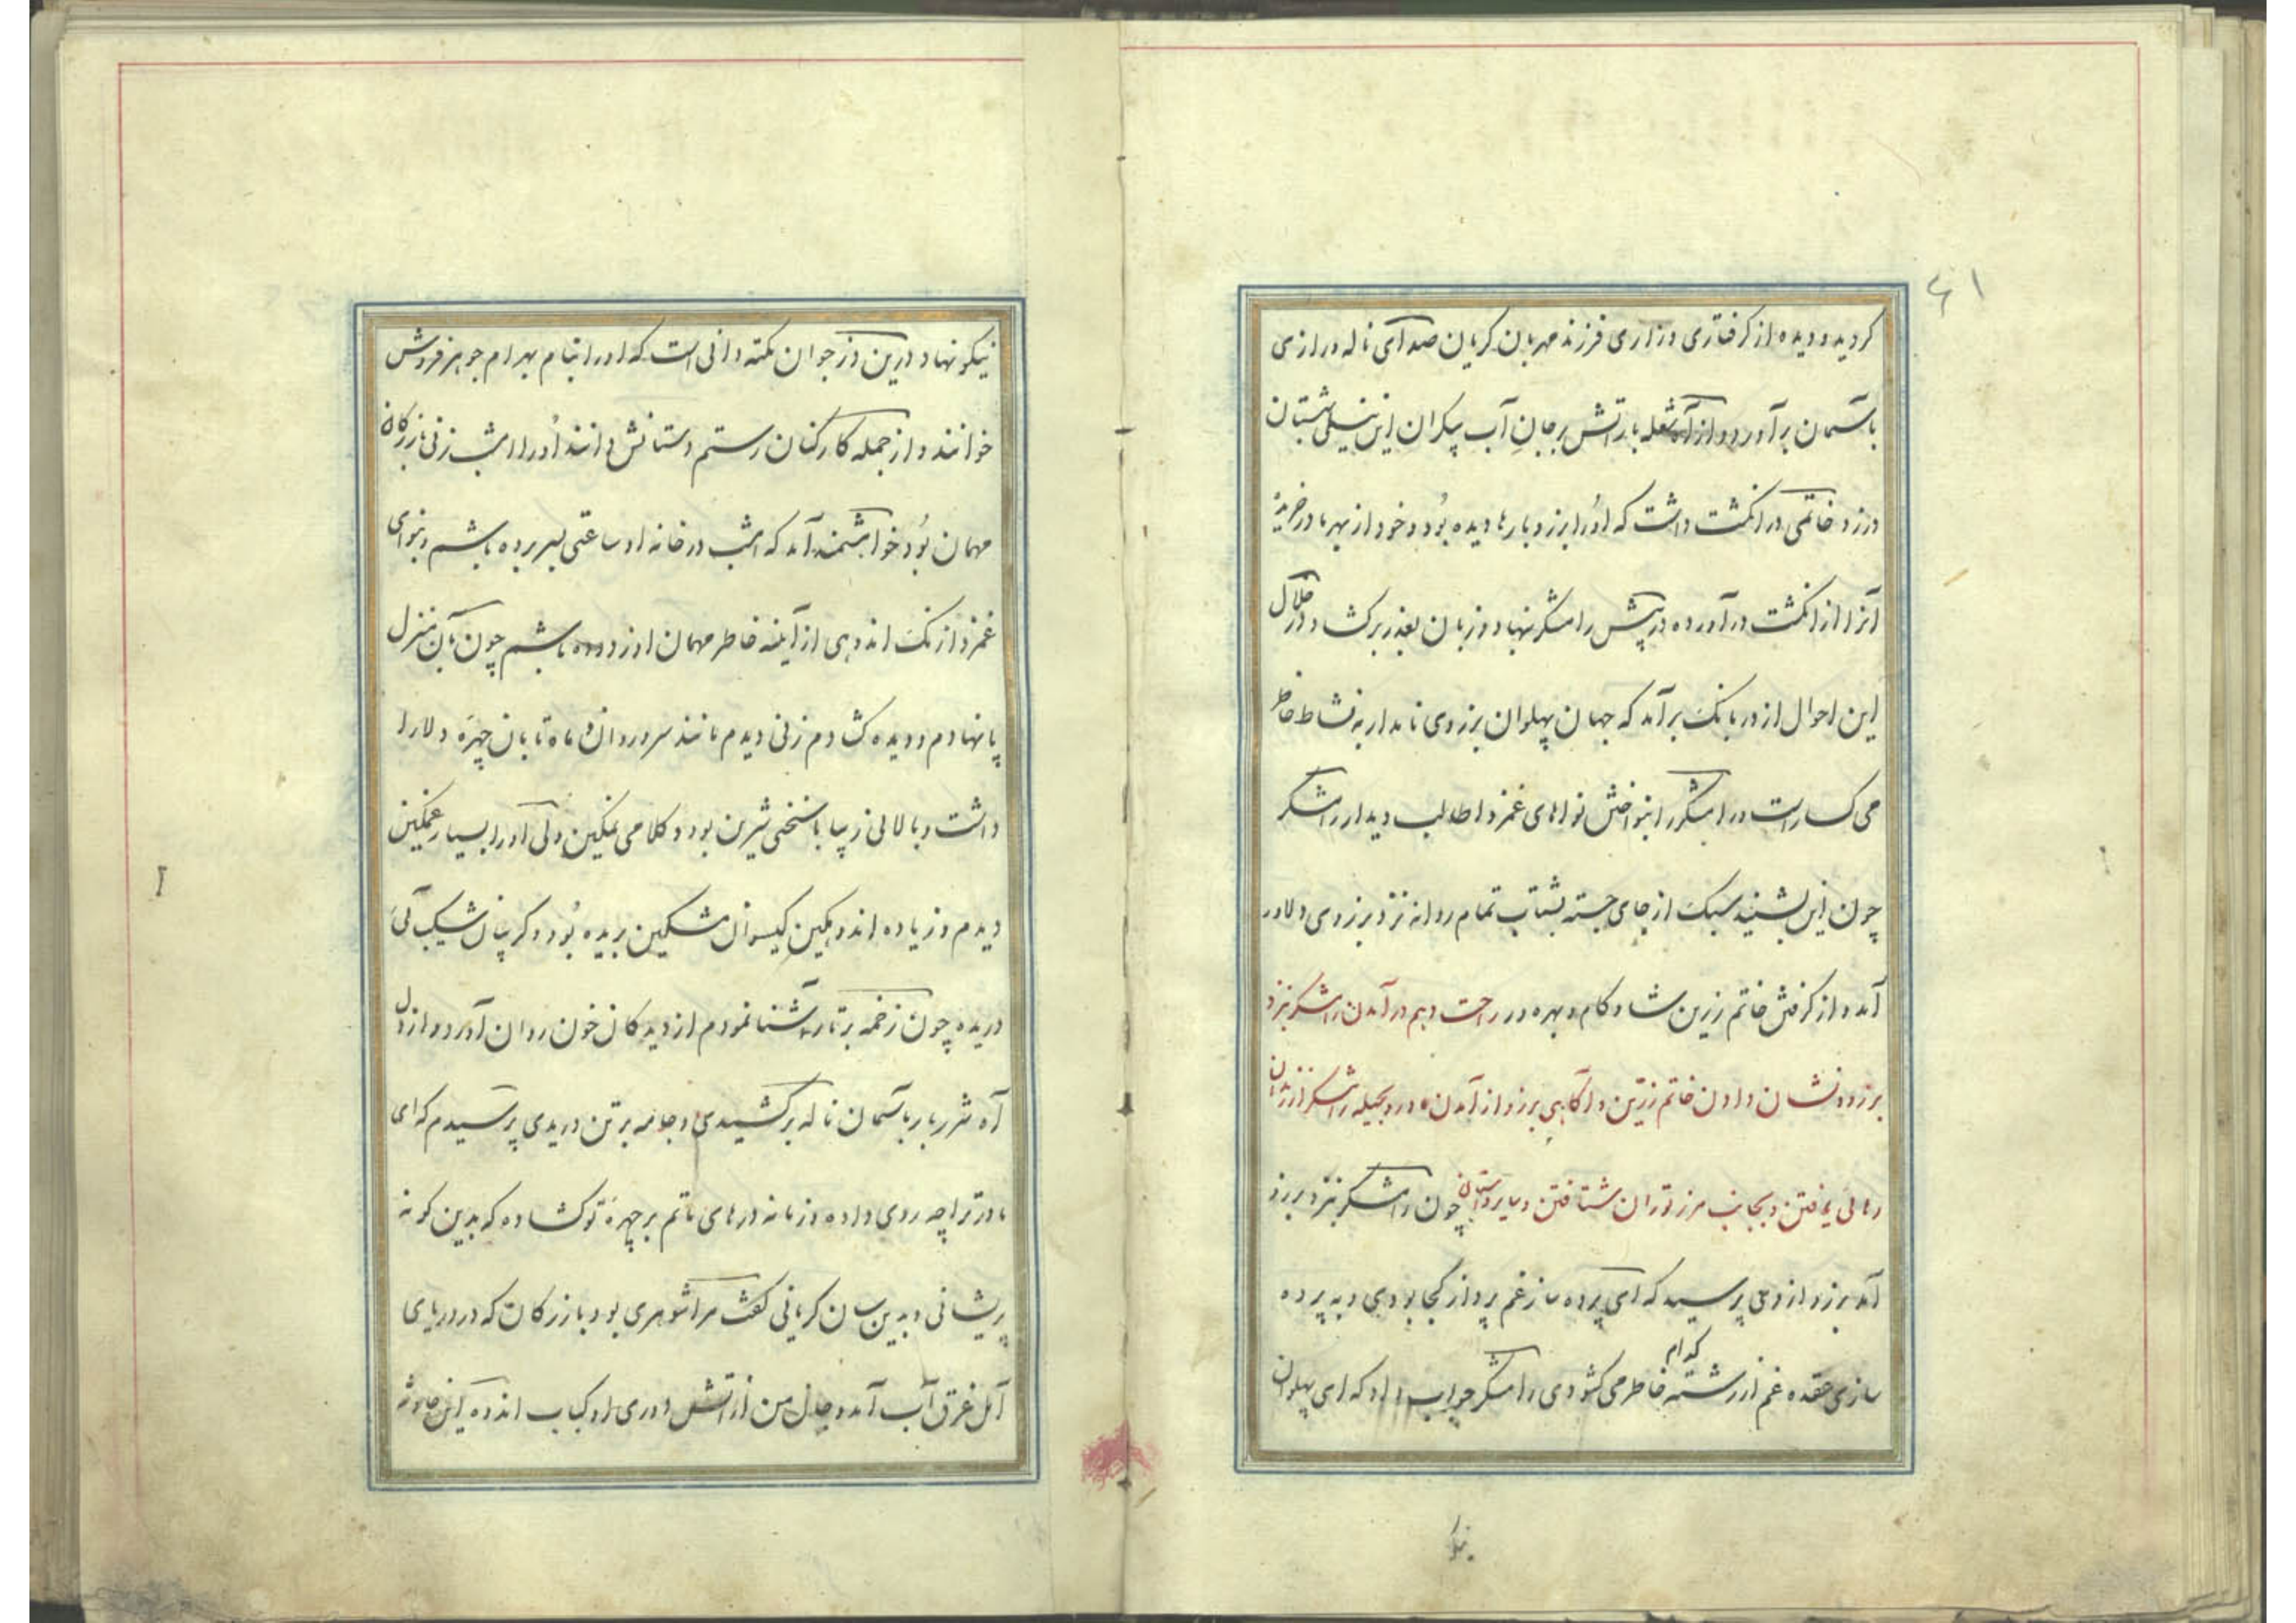 ۶۱
کردید و دیده از کرفتاری و زاری فرزند مهربان کریان صدای ناله و زاری
بآسمان برآورد و از آه شعله بار آتش بر جان آب پیکران این نیلی شبستان
درزد خاتمی در انکشت داشت که او را برزو بارها دیده بود و خود از بهر مادر خریده
آنرا از انکشت درآورده در پیش رامشکر نهاد و زبان بعذر برکشاد در خلال
این احوال از در بانک برآمد که جهان پهلوان برزوی نامدار به نشاط خاطر
می کسار است و رامشکر را بنواختن نواهای غمزدا طالب دیدار رامشکر
چون این بشنید سبک از جای جسته بشتاب تمام روانه نزد برزوی دلاور
آمد و از کرفتن خاتم زرین شادکام و بهره ور راحت و هم درآمدن رامشکر بنزد
برزو و نشان دادن خاتم زرین و آکاهی برزو از آمدن مادر و بحیله رامشکر از زندان
رهائی یافتن و بجانب مرز توران شتافتن و سایر داستان چون رامشکر بنزد برزو
آمد برزو از وی پرسید که ای پرده ساز غم پرداز کجا بودی و به پرده
سازی عقده غم از رشته کدام خاطر می کشودی رامشکر جواب داد که ای پهلوان
نیکو
نیکو نهاد درین دز جوان نکته دانی است که او را بنام بهرام جوهر فروش
خوانند و از جمله کارکنان رستم دستانش دانند او را امشب زنی بازرکان
مهمان بود خواهشمند آمد که امشب در خانه او ساعتی بسر برده باشم و بنوای
غمزدا زنک اندوهی از آینه خاطر مهمان او زدوده باشم چون بآن منزل
پا نهادم و دیده کشادم زنی دیدم مانند سرو روان و ماه تابان چهره دلارا
داشت و بالائی زیبا با سخنی شیرین بود و کلامی نمکین ولی او را بسیار غمکین
دیدم و زیاده اندوهکین کیسوان مشکین بریده بود و کریبان شکیبائی
دریده چون زخمه بر تار آشنا نمودم از دیدکان خون روان آورد و از دل
آه شرربار بآسمان ناله برکشیدی و جامه بر تن دریدی پرسیدم که ای
مادر ترا چه روی داده و زمانه درهای ماتم بر چهره تو کشاده که بدین کونه
پریشانی و بدین سان کریانی کفت مرا شوهری بود بازرکان که در دریای
آمل غرق آب آمد و جان من از آتش دوری او کباب اندوه این حادثه